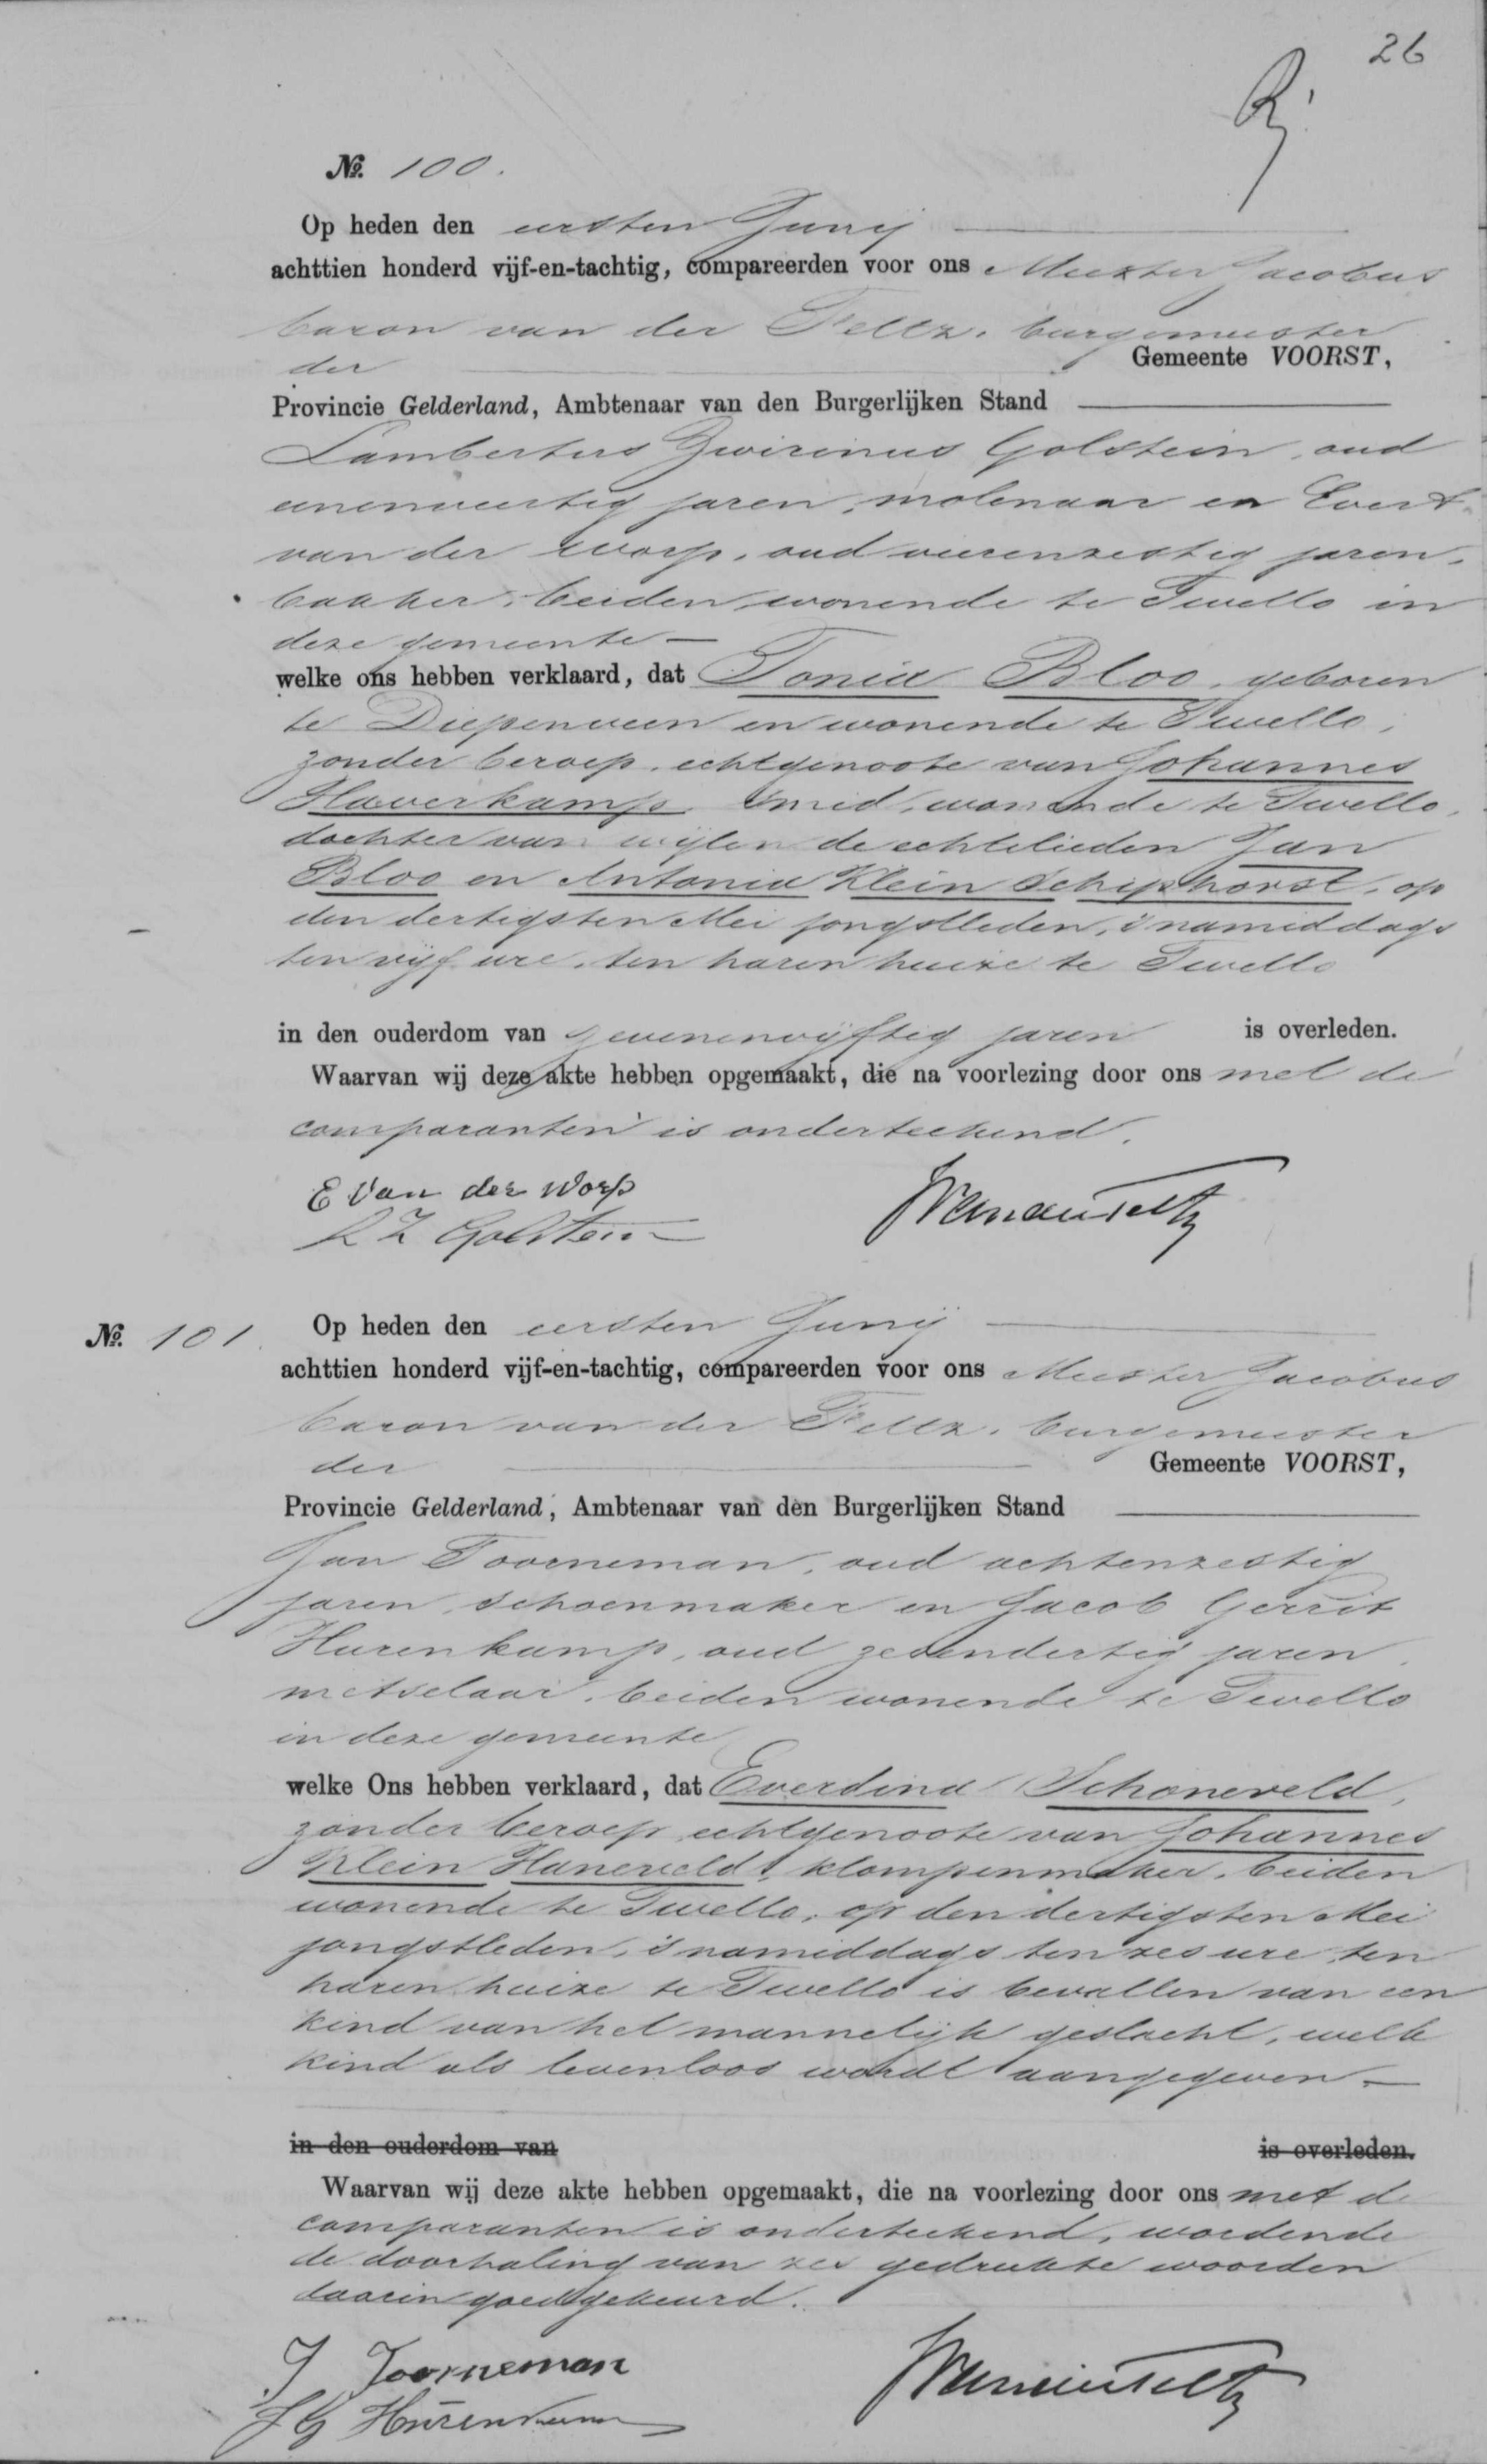 26
№. 100.
Op heden den eersten Junij
achttien honderd vijf-en-tachtig, compareerden voor ons Meester Jacobus
baron van der Feltz, burgemeester
der Gemeente VOORST,
Provincie Gelderland, Ambtenaar van den Burgerlijken Stand
Lambertus Zwirinus Golstein, oud
eenenveertig jaren, molenaar en Evert
van der Worp, oud vierenzestig jaren,
bakker, beiden wonende te Twello in
deze gemeente
welke ons hebben verklaard, dat Tonia Bloo, geboren
te Diepenveen en wonende te Twello,
zonder beroep, echtgenoote van Johannes
Haverkamp, smid, wonende te Twello,
dochter van wijlen de echtelieden Jan
Bloo en Antonia Klein Schiphorst, op
den dertigsten Mei jongstleden, 's namiddags
ten vijf ure, ten haren huize te Twello
in den ouderdom van zevenenvijftig jaren is overleden.
Waarvan wij deze akte hebben opgemaakt, die na voorlezing door ons met de
comparanten is onderteekend.
E Van der Worp
L Z Golstein
№. 101. Op heden den eersten Junij
achttien honderd vijf-en-tachtig, compareerden voor ons Meester Jacobus
baron van der Feltz, burgemeester
der Gemeente VOORST,
Provincie Gelderland, Ambtenaar van den Burgerlijken Stand
Jan Toorneman, oud achtenzestig
jaren, schoenmaker en Jacob Gerrit
Hurenkamp, oud zesendertig jaren,
metselaar, beiden wonende te Twello
in deze gemeente
welke Ons hebben verklaard, dat Everdina Schoneveld,
zonder beroep, echtgenoote van Johannes
Klein Haneveld, klompenmaker, beiden
wonende te Twello, op den dertigsten Mei
jongstleden, 's namiddags ten zes ure, ten
haren huize te Twello is bevallen van een
kind van het mannelijk geslacht, welk
kind als levenloos wordt aangegeven
in den ouderdom van is overleden.
Waarvan wij deze akte hebben opgemaakt, die na voorlezing door ons met de
comparanten is onderteekend, wordende
de doorhaling van zes gedrukte woorden
daarin goedgekeurd.
J Toorneman
J G Hurenkamp